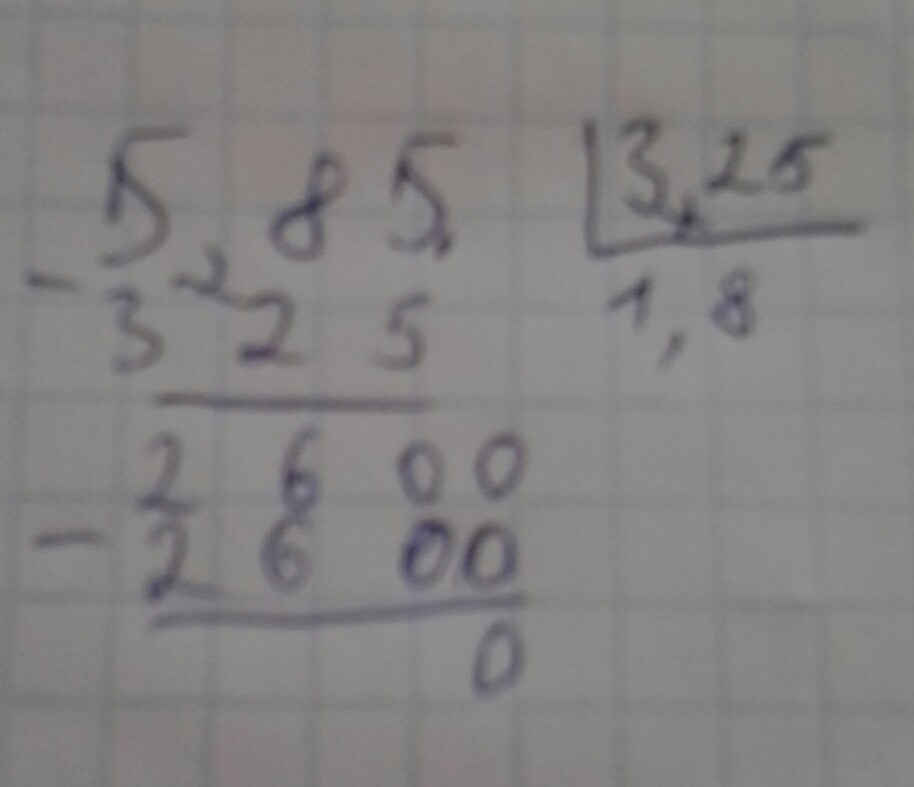 5 8 5, 3,25
- 3 2 5 1,8
2 6 0 0
- 2 6 0 0
0